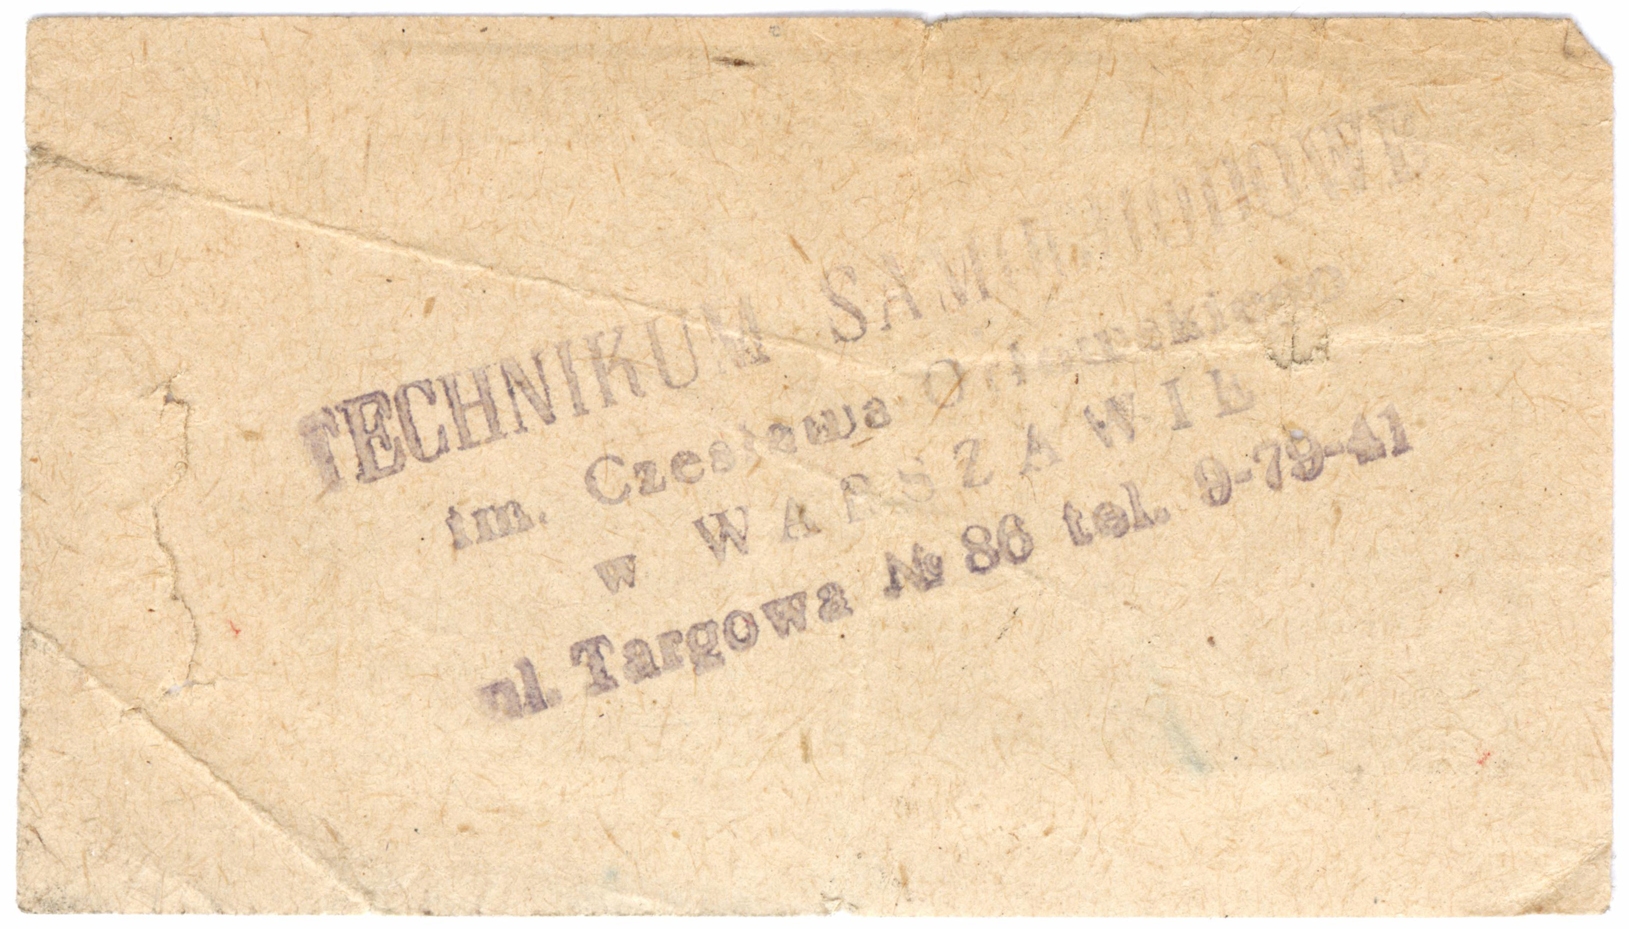 TECHNIKUM SAMOCHODOWE
im. Czesława Orłowskiego
w WARSZAWIE
ul. Targowa № 86 tel. 9-79-41